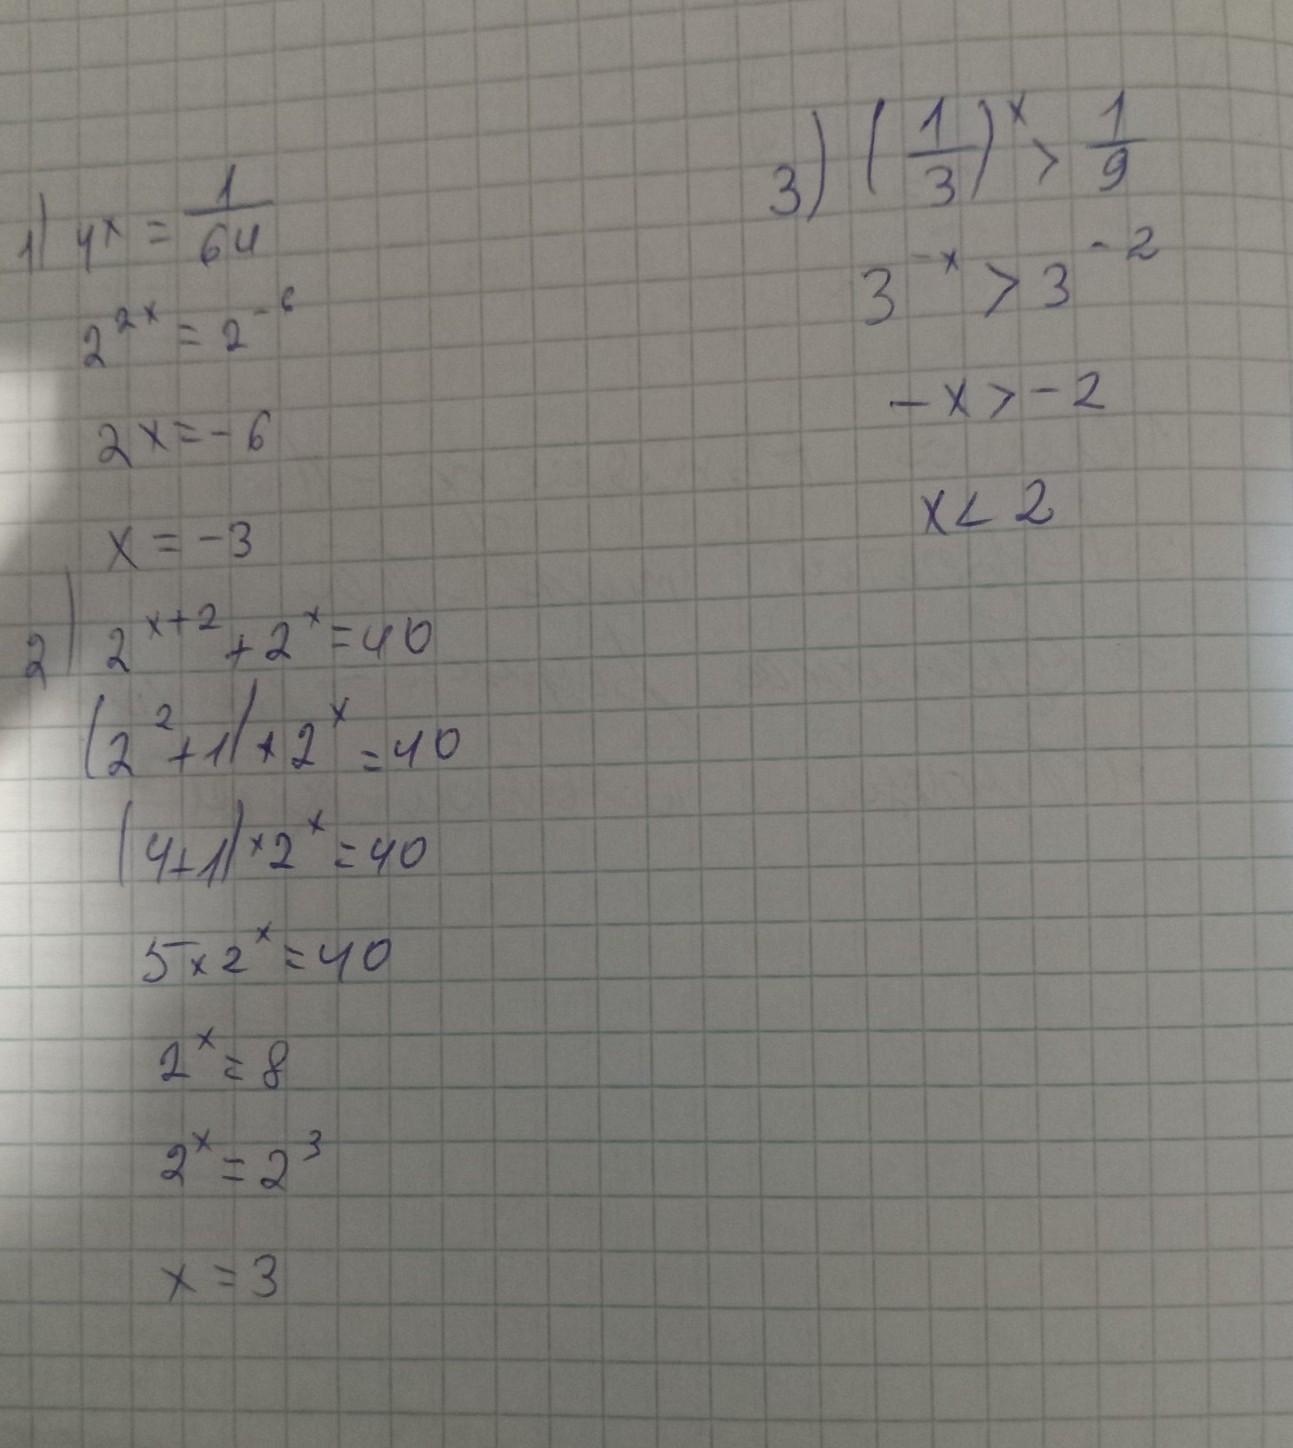 1) 4x = 1/64
2^2x = 2^-6
2x = -6
x = -3
2) 2^x+2 + 2^x = 40
(2^2 + 1) × 2^x = 40
(4+1) × 2^x = 40
5 × 2^x = 40
2^x = 8
2^x = 2^3
x = 3
3) (1/3)^x > 1/9
3^-x > 3^-2
-x > -2
x < 2